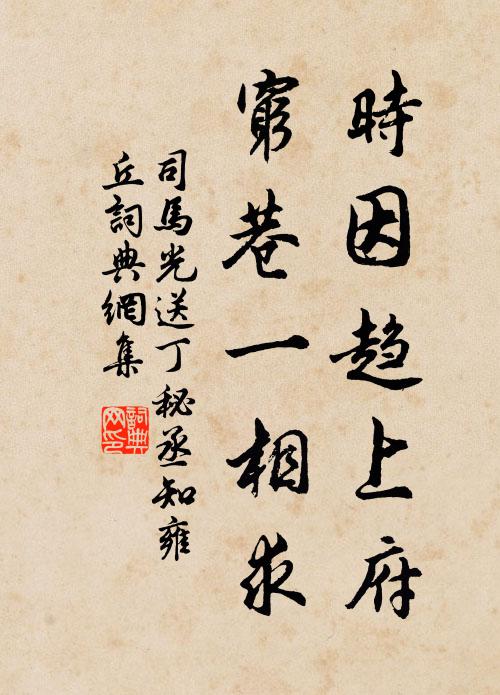 時因趋上府
窮巷一相求
司馬光送丁秘丞知雍
丘詞典網集
詞典
网印